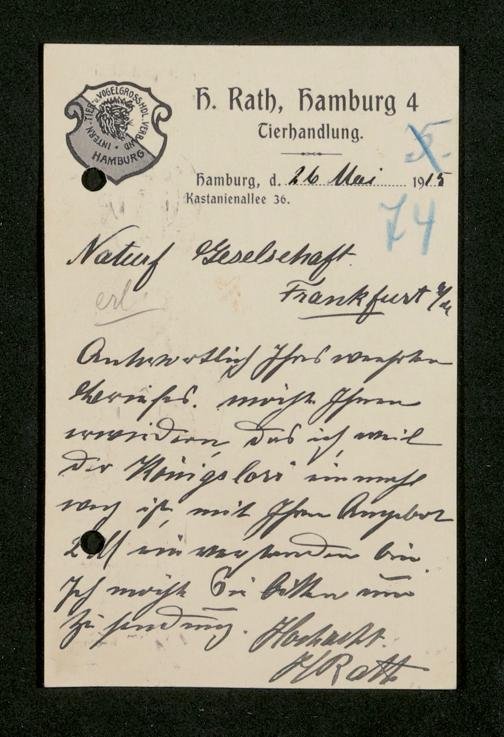 INTERN. TIER- u. VOGELGROSSHDL. VERBAND
HAMBURG
H. Rath, Hamburg 4
Tierhandlung.
Hamburg, d. 26 Mai 1915
Kastanienallee 36.
5.
74
Naturf Geselschaft.
Frankfurt a/M
erl
Antwortlich Ihres werthen
Briefes. möchte Ihnen
erwiedern, das ich weil
der Königslori einmahl
weg ist, mit Ihren Angebot
2 M einverstanden bin
Ich möchte Sie bitten um
Zusendung. Hochacht.
H Rath